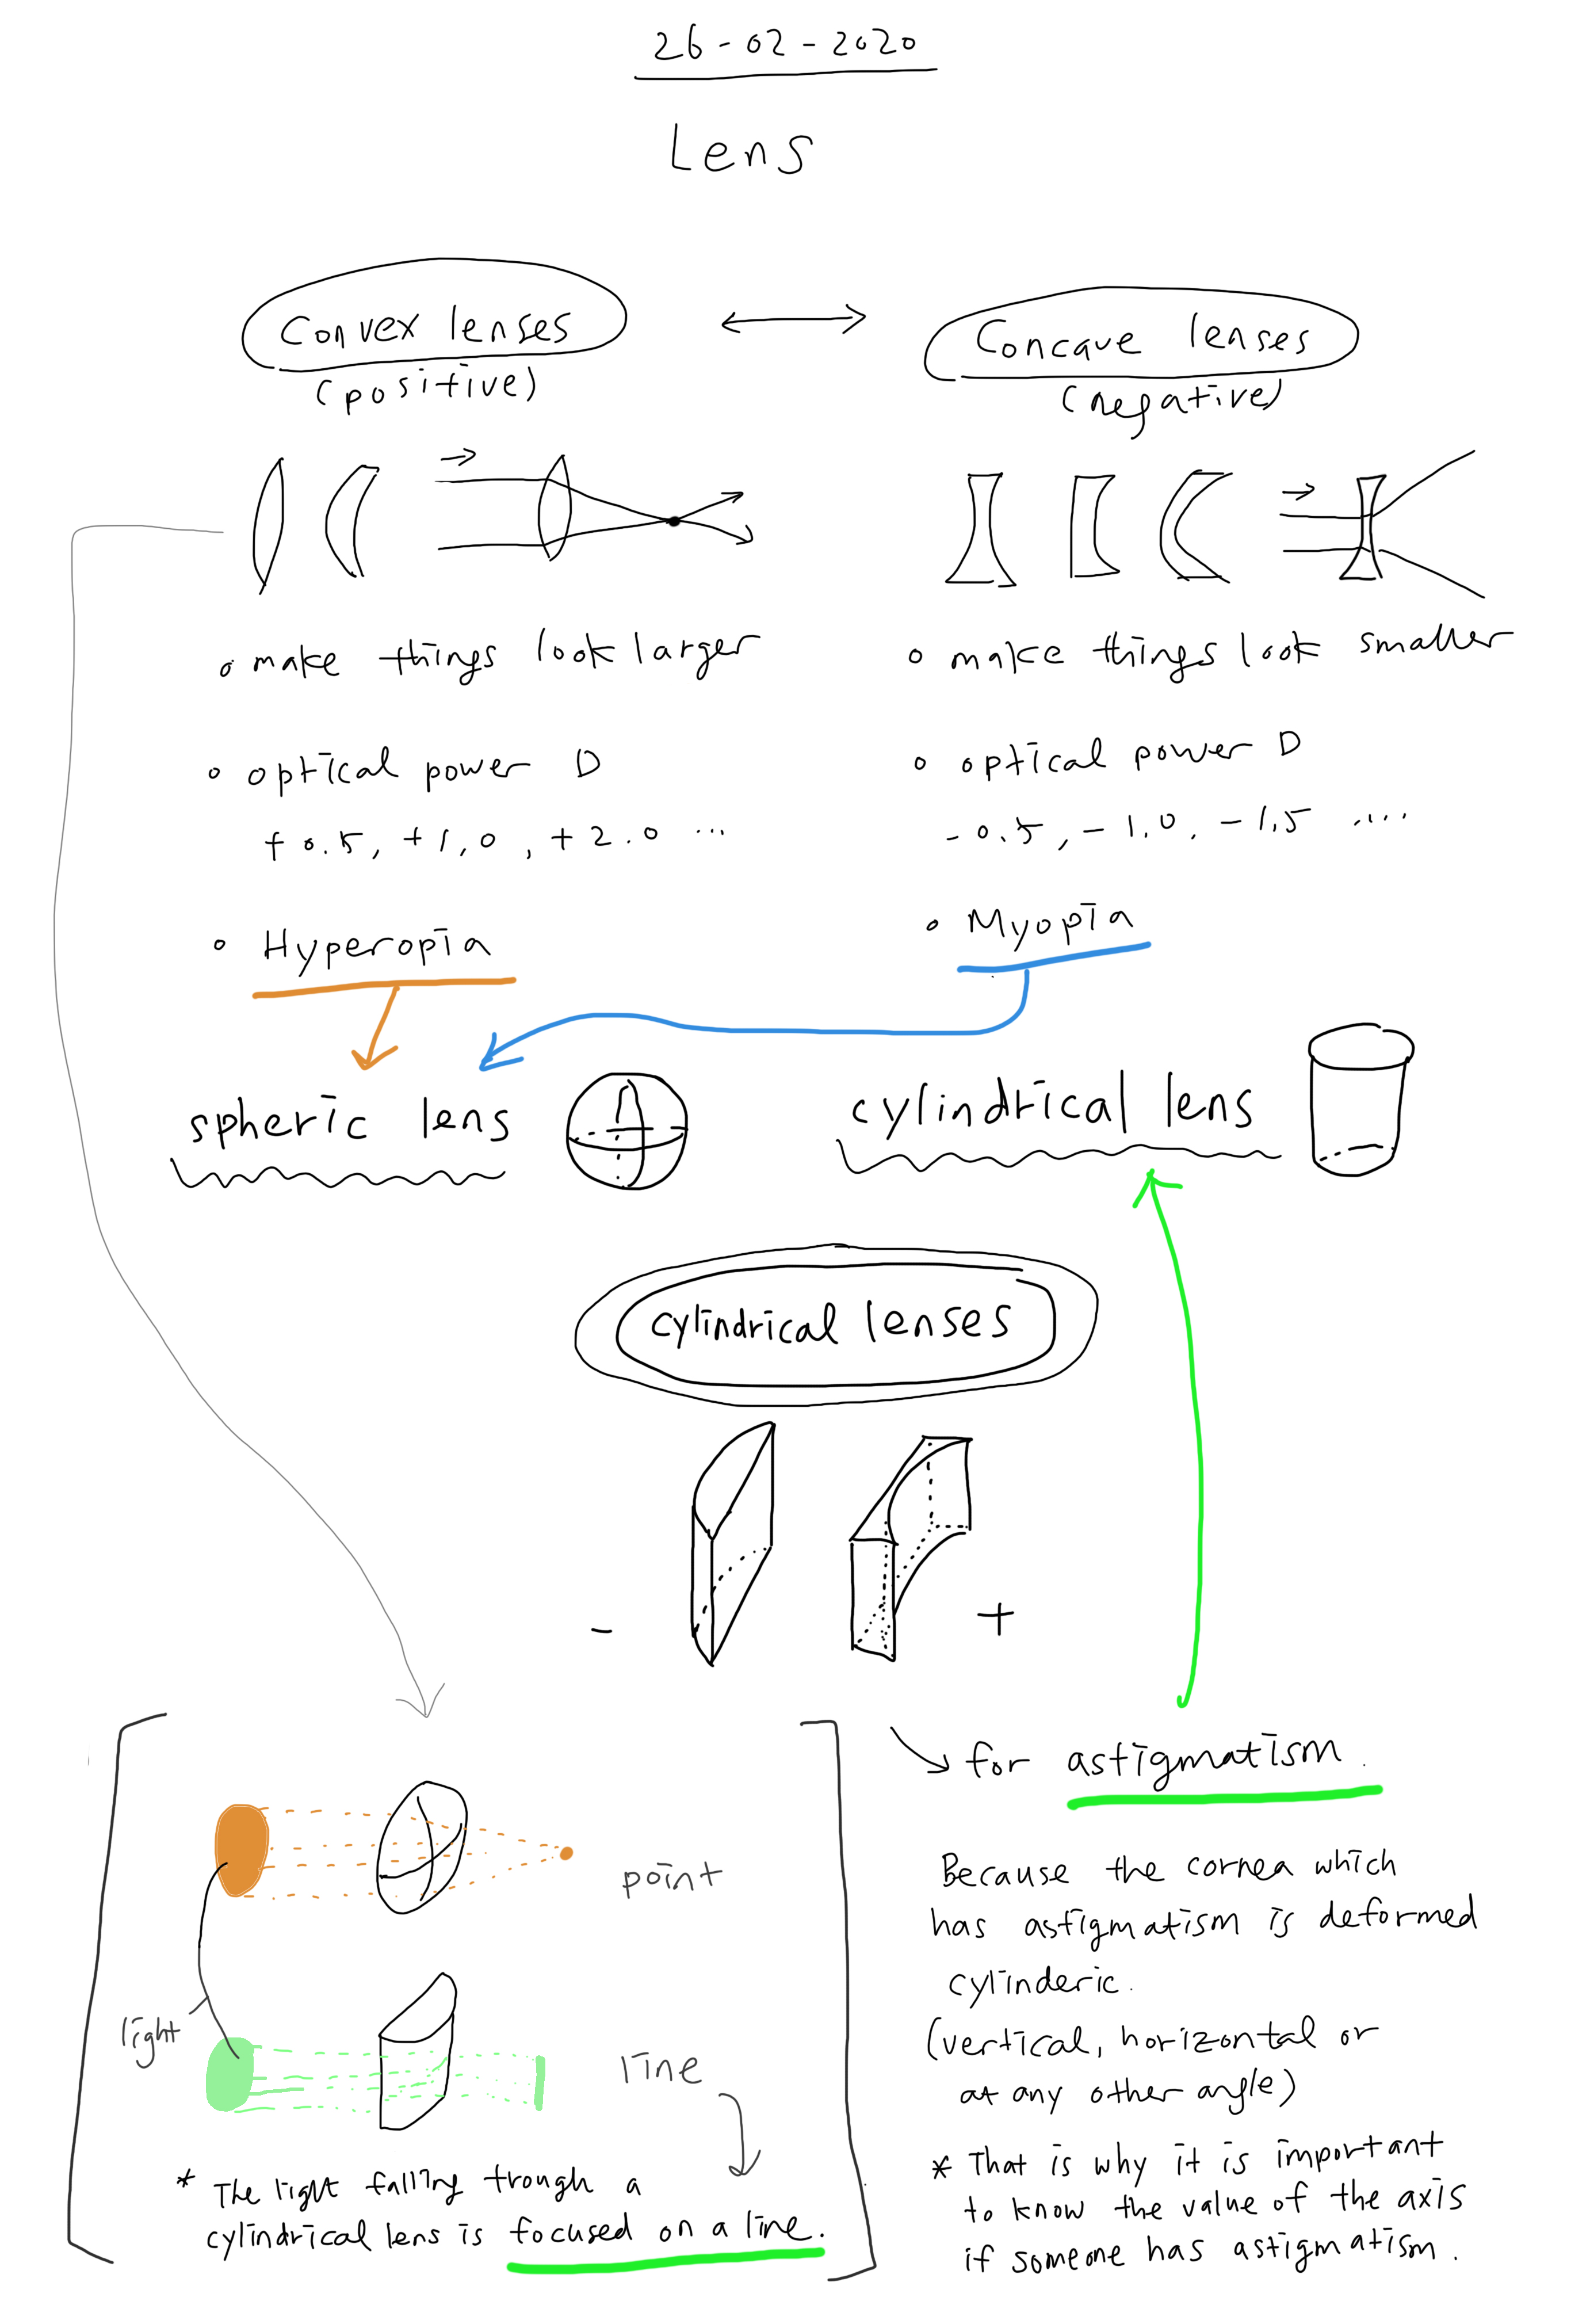 26-02-2020
Lens
Convex lenses
(positive)
Concave lenses
(negative)
• make things look larger
• make things look smaller
• optical power D
+0.5, +1,0, +2.0 ...
• optical power D
-0.5, -1.0, -1,5 ....
• Hyperopia
• Myopia
spheric lens
cylindrical lens
cylindrical lenses
-
+
point
light
line
* The light falling trough a
cylindrical lens is focused on a line.
for astigmatism.
Because the cornea which
has astigmatism is deformed
cylinderic.
(vertical, horizontal or
at any other angle)
* That is why it is important
to know the value of the axis
if someone has astigmatism.